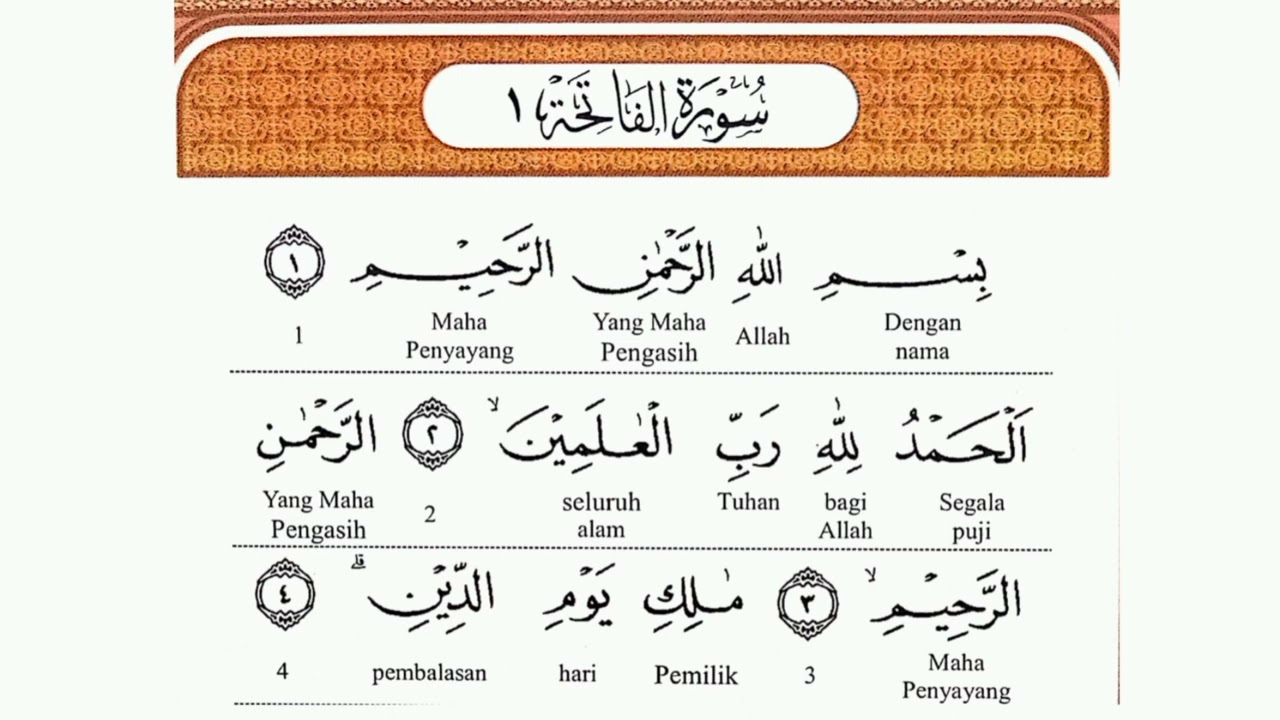 سُوْرَةُ الْفَاتِحَةِ ١
بِسْمِ اللّٰهِ الرَّحْمٰنِ الرَّحِيْمِ ١
Dengan nama Allah Yang Maha Pengasih Maha Penyayang 1
اَلْحَمْدُ لِلّٰهِ رَبِّ الْعٰلَمِيْنَۙ ٢ الرَّحْمٰنِ
Segala puji bagi Allah Tuhan seluruh alam 2 Yang Maha Pengasih
الرَّحِيْمِۙ ٣ مٰلِكِ يَوْمِ الدِّيْنِۗ ٤
Maha Penyayang 3 Pemilik hari pembalasan 4